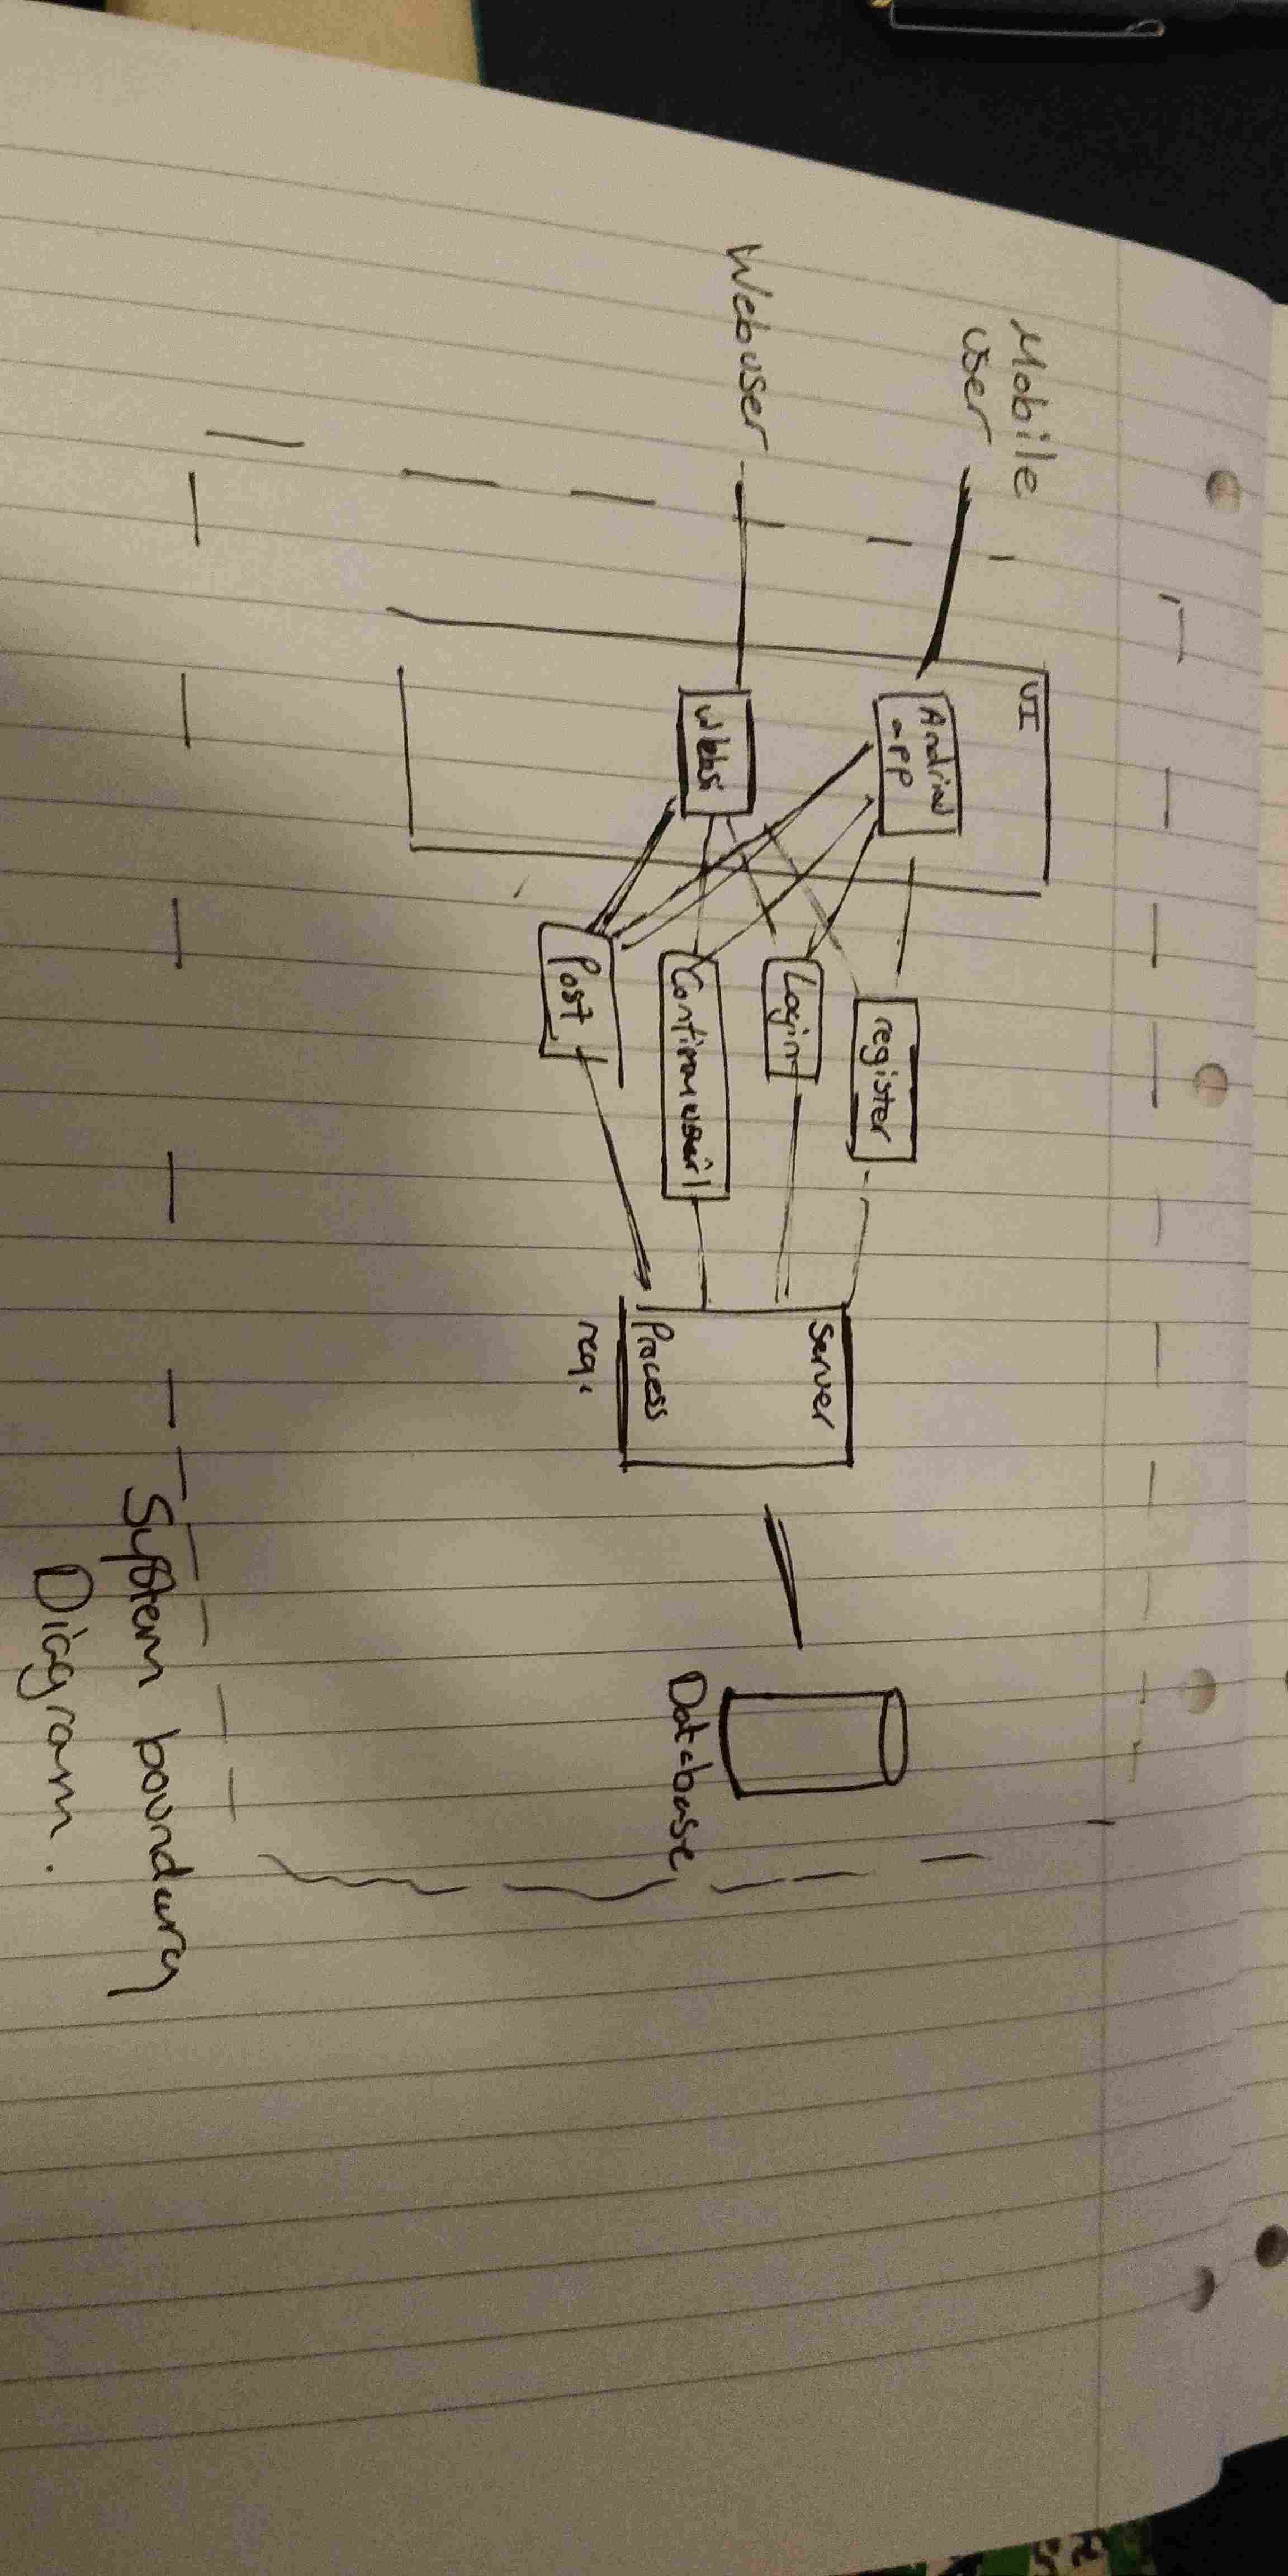 Mobile
User
Web user
UI
Android
app
register
Login
Confirm user
Post
Server
Process
req.
Database
System boundary
Diagram.